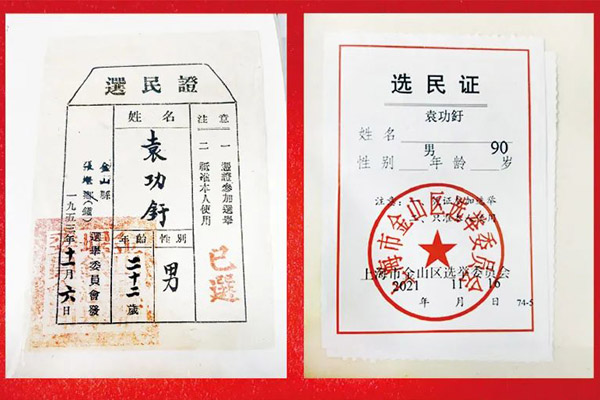 選民證
注意
一 憑證參加選舉
二 祇准本人使用
姓名
袁功釪
性別
男
年齡
二十二歲
已選
金山縣
選舉委員會發
一九五三年十一月六日
选民证
袁功釪
姓名
男 90
性别 年龄 岁
注意:
证参加选举
上海市金山区选举委员会
上海市金山区选举委员会
2021 11 16
年 月 日
74-5